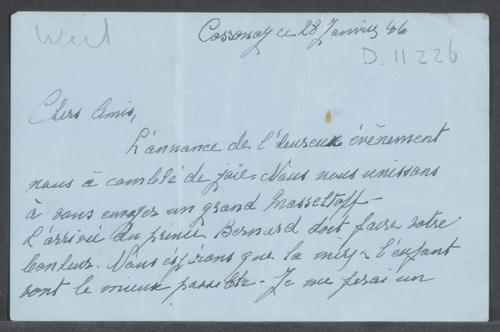 Weil
Cossonay ce 28 Janvier 46
D. 11 226
Chers Amis,
L'annonce de l'heureux évènement
nous à comblé de joie. Nous nous unissons
à vous envoyer un grand Masseltoff -
L'arrivée du prince Bernard doit faire votre
bonheur. Nous espérons que la mère & l'enfant
vont le mieux possible - Je me ferai un